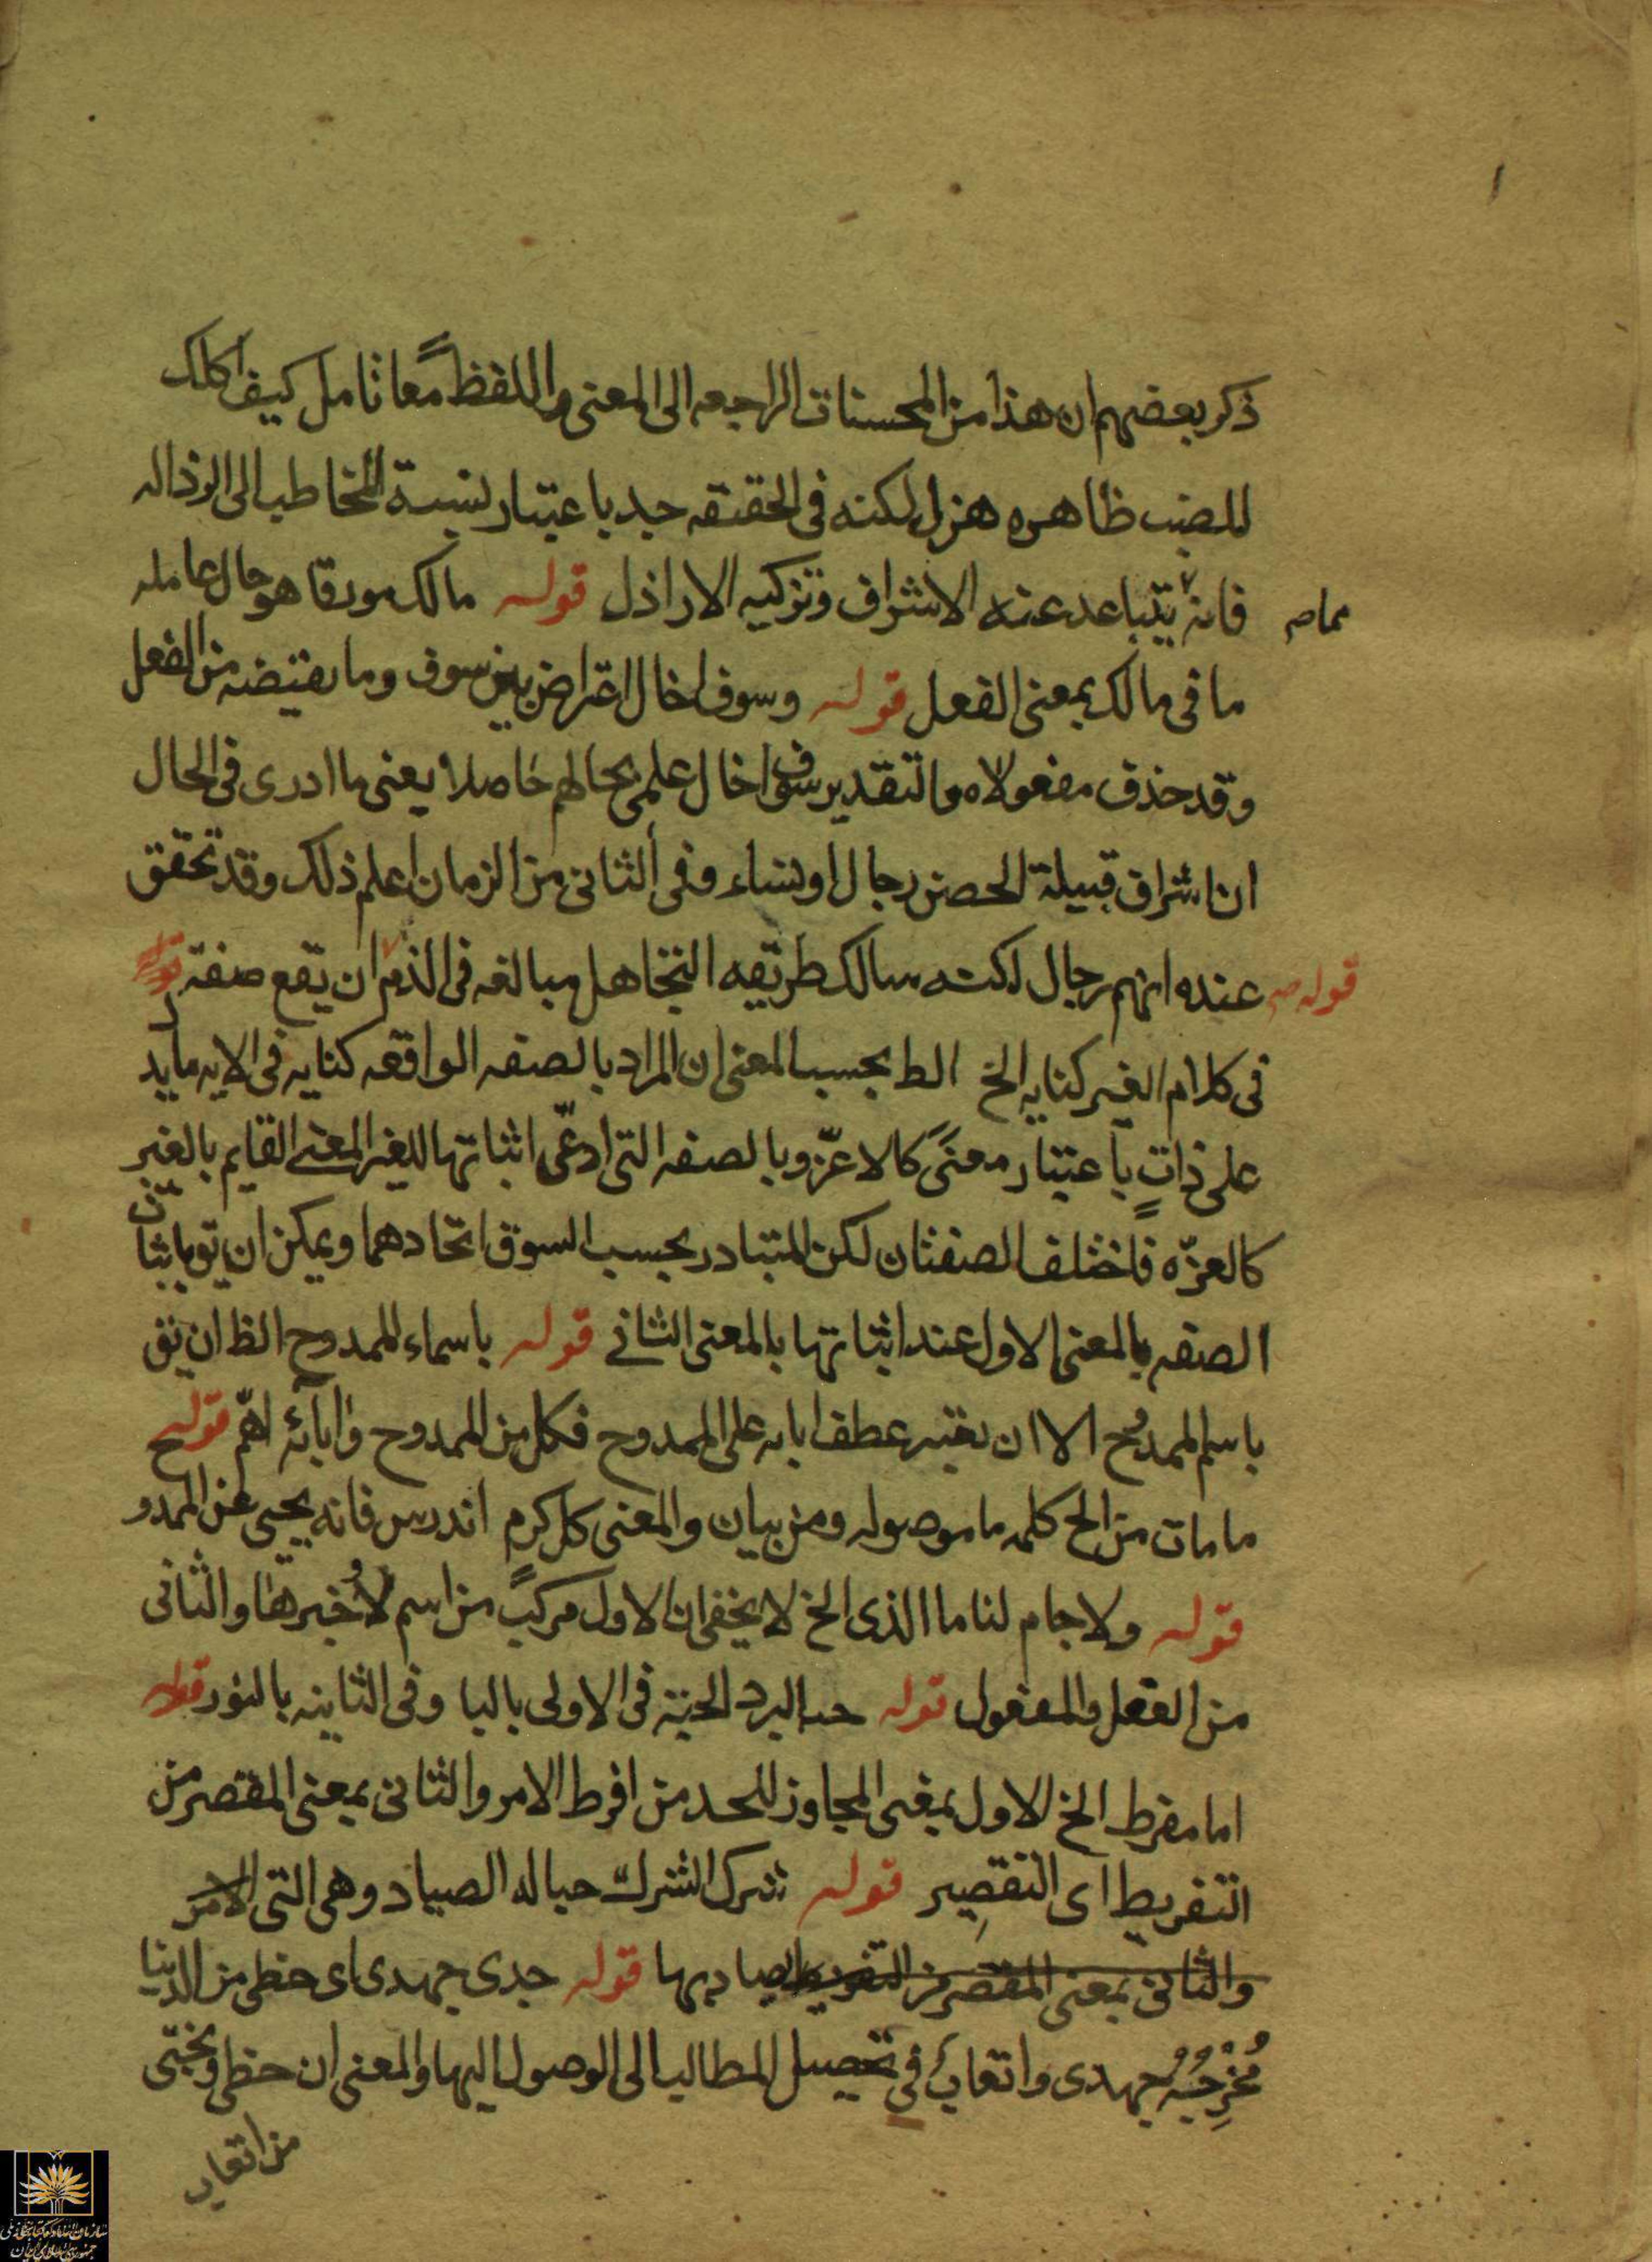 ذكر بعضهم ان هذا من المحسنات الراجعه الى المعنى واللفظ معًا تامل كيف اكلك
للضب ظاهره هزل لكنه فى الحقيقه جد باعتبار نسبة المخاطب الى الرذاله
فانه يتباعد عنه الاشراف وتزكيه الاراذل قوله مالك مورقا هو حال عامله
مما ص
ما فى مالك بمعنى الفعل قوله وسوف اخال اعتراض بين سوف وما يقتضيه من الفعل
وقد حذف مفعولاه والتقدير سوف اخال علمى بحالهم حاصلا يعنى ما ادرى فى الحال
ان اشراف قبيلة الحصن رجال او نساء وفى الثانى من الزمان اعلم ذلك وقد تحقق
عنده انهم رجال لكنه سالك طريقه التجاهل مبالغه فى الذم ان يقع صفته
قوله ص
فى كلام الغير كنايه الخ الظ بحسب المعنى ان المراد بالصفه الواقعه كنايه فى الايه ما يدل
على ذاتٍ باعتبار معنىً كالاعزّ وبالصفه التى ادعّى اثباتها للغير المعنى القايم بالغير
كالعزّه فاختلف الصفتان لكن المتبادر بحسب السوق اتحادهما ويمكن ان يق باثبات
الصفه بالمعنى الاول عند اثباتها بالمعنى الثانى قوله باسماء الممدوح الظ ان يق
باسم الممدوح الا ان يعتبر عطف ابايه على الممدوح فكل من الممدوح وابآئه اهّم قوله
ما مات من الخ كلمه ما موصوله ومن بيان والمعنى كل كرم اندرس فانه يحيى عن الممدوح
قوله ولا جام لنا ما الذى الخ لا يخفى ان الاول مركبً من اسم لا وخبرها والثانى
من الفعل والمفعول قوله جبه البرد الجبة فى الاولى بالبا وفى الثانيه بالنون قوله
اما مفرط الخ الاول بمعنى المجاوز للحد من افرط الامر والثانى بمعنى المقصر من
التفريط اى التقصير قوله شرك الشرك حباله الصياد وهى التى الامر
والثانى بمعنى المقصر من التفريط يصاد بها قوله جدى جهدى اى حظى من الدنيا
مُخْرِجُهُ جهدى واتعابى فى تحصيل المطالب الى الوصول اليها والمعنى ان حظى وبختى
من اتعابى